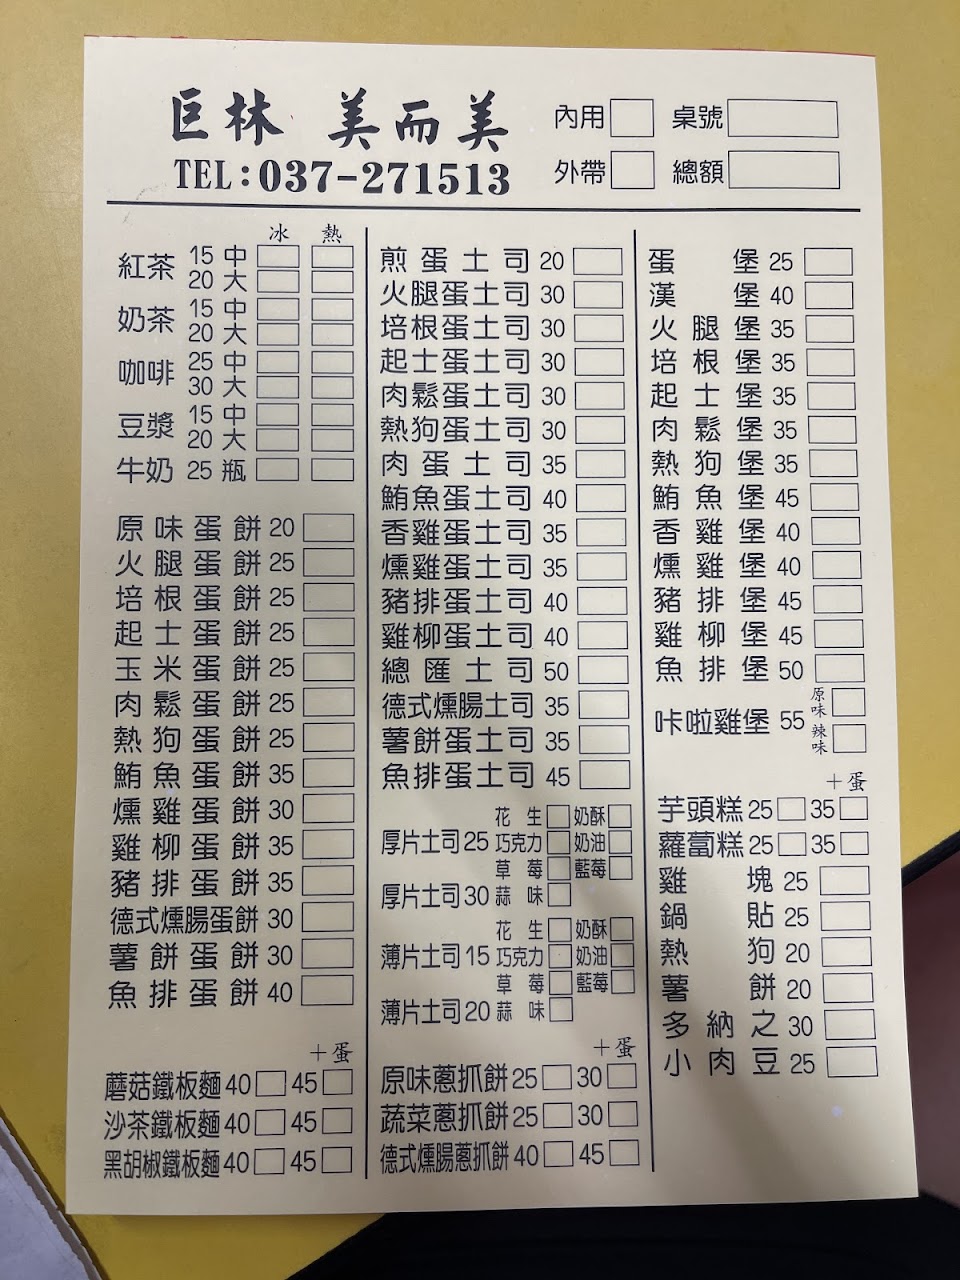 巨林 美而美
TEL:037-271513
內用
桌號
外帶
總額
冰 熱
紅茶 15 中
20 大
奶茶 15 中
20 大
咖啡 25 中
30 大
豆漿 15 中
20 大
牛奶 25 瓶
原味蛋餅 20
火腿蛋餅 25
培根蛋餅 25
起士蛋餅 25
玉米蛋餅 25
肉鬆蛋餅 25
熱狗蛋餅 25
鮪魚蛋餅 35
燻雞蛋餅 30
雞柳蛋餅 35
豬排蛋餅 35
德式燻腸蛋餅 30
薯餅蛋餅 30
魚排蛋餅 40
+蛋
蘑菇鐵板麵 40 45
沙茶鐵板麵 40 45
黑胡椒鐵板麵 40 45
煎蛋土司 20
火腿蛋土司 30
培根蛋土司 30
起士蛋土司 30
肉鬆蛋土司 30
熱狗蛋土司 30
肉蛋土司 35
鮪魚蛋土司 40
香雞蛋土司 35
燻雞蛋土司 35
豬排蛋土司 40
雞柳蛋土司 40
總匯土司 50
德式燻腸土司 35
薯餅蛋土司 35
魚排蛋土司 45
花生 奶酥
厚片土司 25 巧克力 奶油
草莓 藍莓
厚片土司 30 蒜味
花生 奶酥
薄片土司 15 巧克力 奶油
草莓 藍莓
薄片土司 20 蒜味
+蛋
原味蔥抓餅 25 30
蔬菜蔥抓餅 25 30
德式燻腸蔥抓餅 40 45
蛋堡 25
漢堡 40
火腿堡 35
培根堡 35
起士堡 35
肉鬆堡 35
熱狗堡 35
鮪魚堡 45
香雞堡 40
燻雞堡 40
豬排堡 45
雞柳堡 45
魚排堡 50
原味
咔啦雞堡 55
辣味
+蛋
芋頭糕 25 35
蘿蔔糕 25 35
雞塊 25
鍋貼 25
熱狗 20
薯餅 20
多納之 30
小肉豆 25